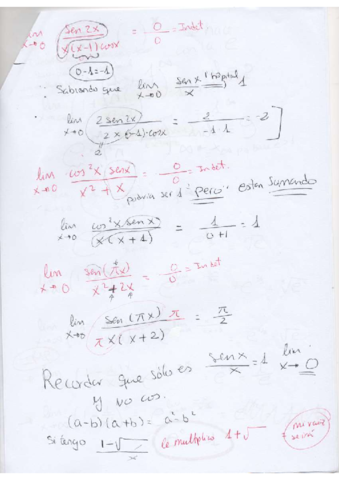 lim x→0 sen 2x / x(x-1) cosx = 0/0 = Indet
0-1=-1
· Sabiendo que lim x→0 sen x / x l'hôpital 1
lim x→0 2 sen 2x / 2x (x-1)·cosx = 2 / -1·1 = -2
lim x→0 cos²x senx / x² + x = 0/0 = Indet.
podría ser 1 pero estan sumando
lim x→0 cos²x senx / (x·(x+1) = 1 / 0+1 = 1
lim x→0 sen(πx) / x²+2x = 0/0 = Indet
lim x→0 sen(πx) π / πx(x+2) = π/2
Recordar que sólo es senx / x = 1 lim x→0
y no cos.
(a-b)(a+b) = a²-b²
Si tengo 1-√ / x le multiplico 1+√